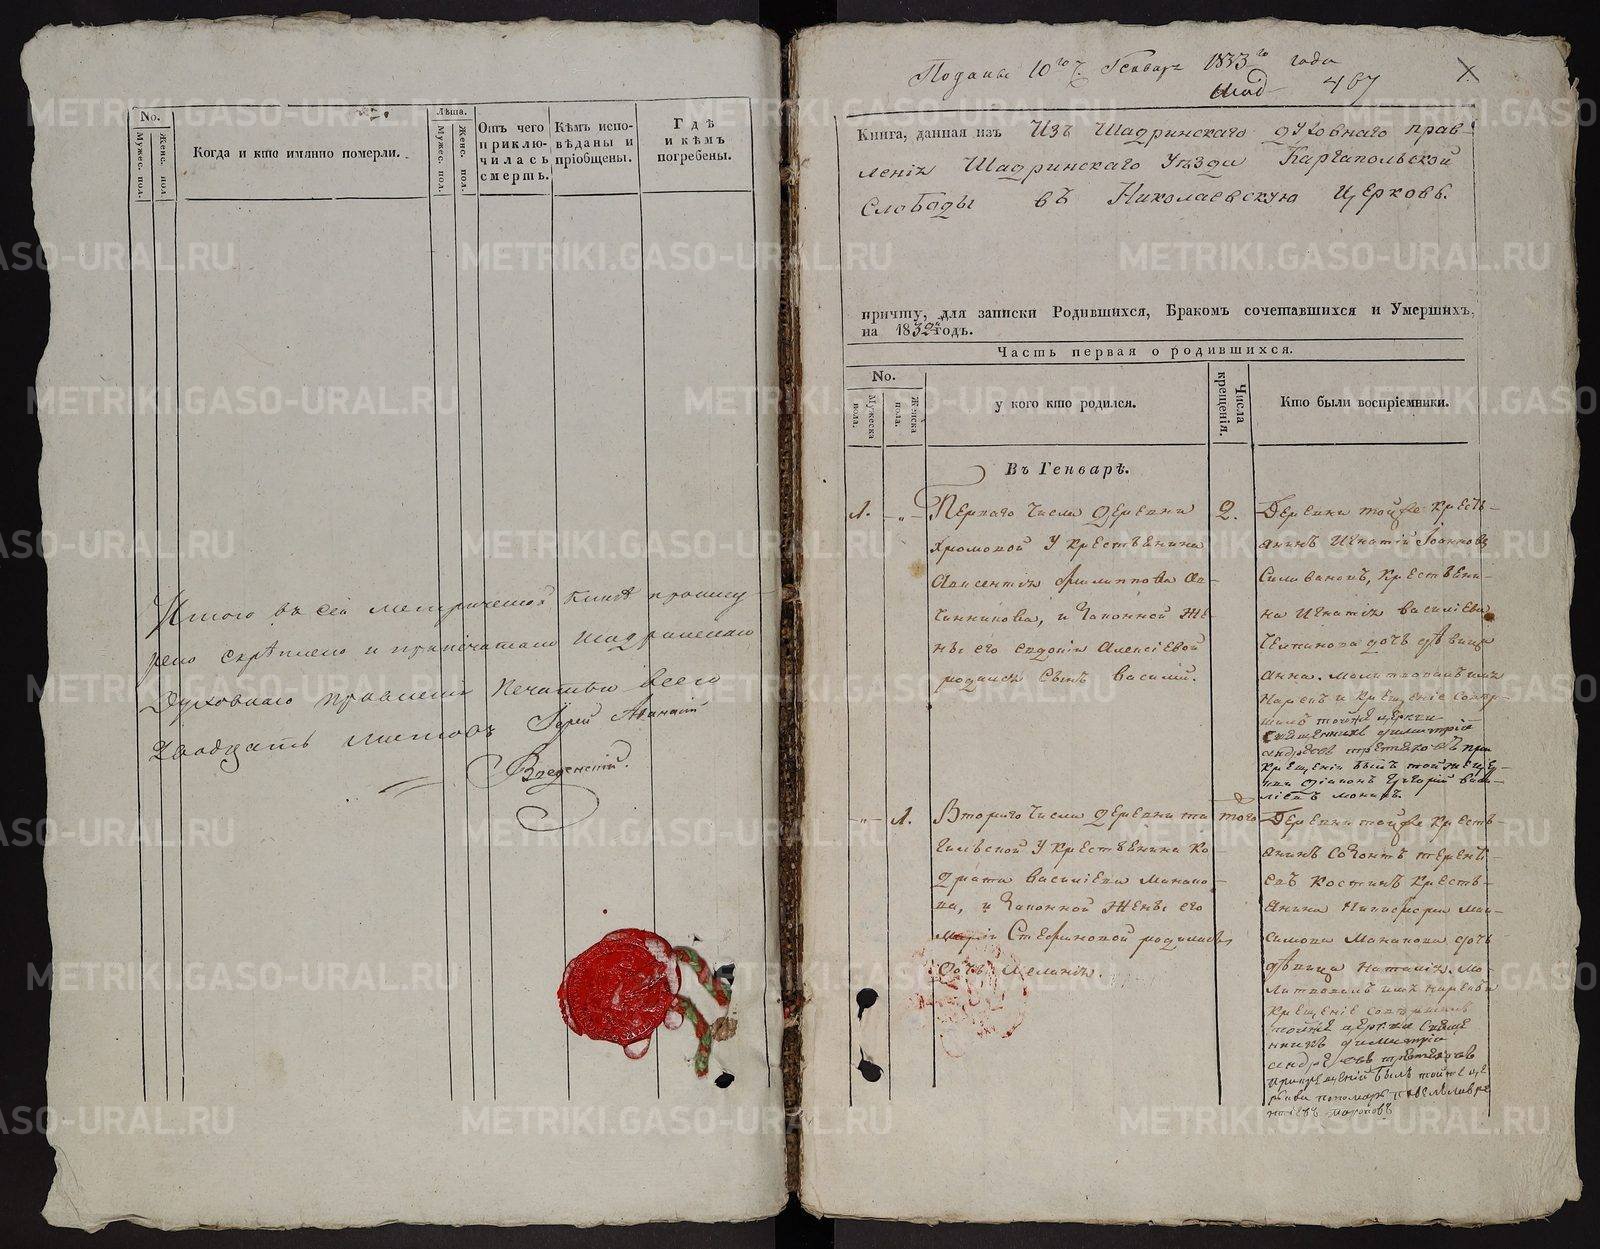 No.
Мужес. пол.
Женс. пол.
Когда и кто имянно померли.
Лѣта.
Мужес. пол.
Женс. пол.
Отъ чего
приклю-
чилась
смерть.
Кѣмъ испо-
вѣданы и
пріобщены.
Гдѣ
и кѣмъ
погребены.
Итого въ сей метрической книгѣ прошну-
рено скрѣплено и припечатано Шадринскаго
Духовнаго правленія печатью всего
двадцать листовъ Іерей Афанасій
Введенскій.
Поданы 10го Генваря 1833го года
467
Книга, данная изъ Изъ Шадринскаго духовнаго прав-
ленія Шадринскаго уѣзда Каргапольской
слободы въ Николаевскую церковь.
причту, для записки Родившихся, Бракомъ сочетавшихся и Умершихъ,
на 1832й годъ.
Часть первая о родившихся.
No.
Мужеска
пола.
Женска
пола.
у кого кто родился.
Числа
крещенія.
Кто были воспріемники.
Въ Генварѣ.
1. -„- Перваго числа деревни
Хромовой у крестьянина
Авксентія Филиппова Ов-
чинникова, и законной же-
ны его Евдокіи Алексіевой
родился сынъ Василій.
2.
Деревни тойже кресть-
янинъ Игнатій Іоанновъ
Селивановъ, крестьяни-
на Игнатія Василіева
дочь дѣвица
Анна. молитвовалъ имя
нарекъ и крещеніе совер-
шилъ тойже церкви
Священникъ Димитрій
Андреевъ Третьяковъ при
крещеніи былъ тойже цер-
кви діаконъ Григорій Васи-
ліевъ
-„- 1. Второго числа деревни
у крестьянина Ко-
драта Василіева Манако-
ва, и законной жены его
Маріи Стефановой родилась
дочь Меланія.
того
Деревни тойже кресть-
янинъ Созонтъ Терентi-
евъ Костинъ кресть-
янина Никифора Мак-
симова Манакова дочь
дѣвица Наталія. мо-
литвовалъ имя нарекъ и
крещеніе совершилъ
тойже церкви Свяще
нникъ Димитрій
Андреевъ Третьяковъ
при крещеніи былъ тойже це
ркви пономарь
METRIKI.GASO-URAL.RU